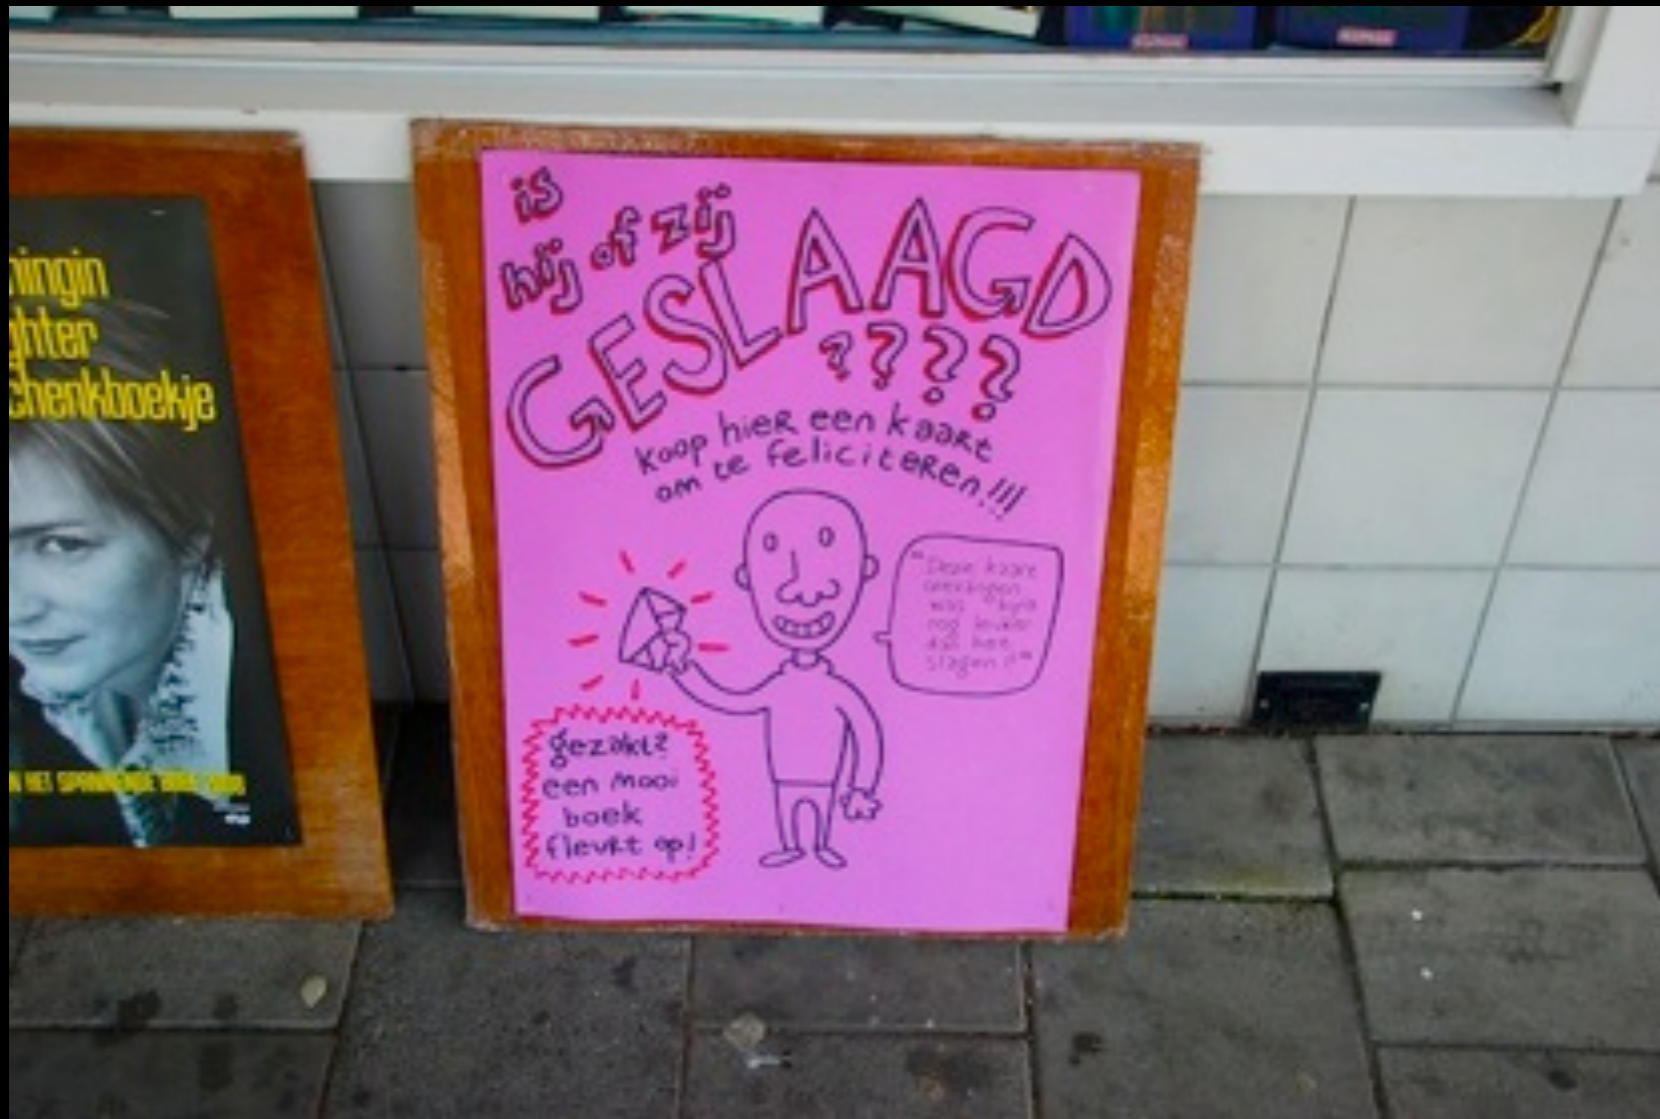 ningin
ghter
chenkboekje
N HET SPANNENDE
is
hij of zij
GESLAAGD
????
koop hier een kaart
om te feliciteren!!!
"Deze kaart
ontvangen
was bijna
nog leuker
dan het
slagen!!"
gezakt?
een mooi
boek
fleurt op!